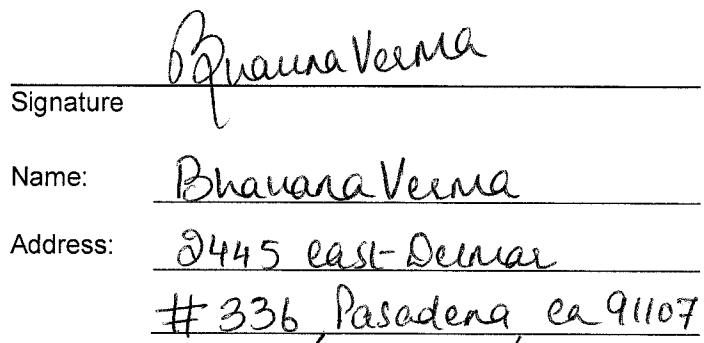 Bhavna Verma
Signature
Name: Bhavana Verma
Address: 2445 east Delmar
# 336, Pasadena, ca 91107